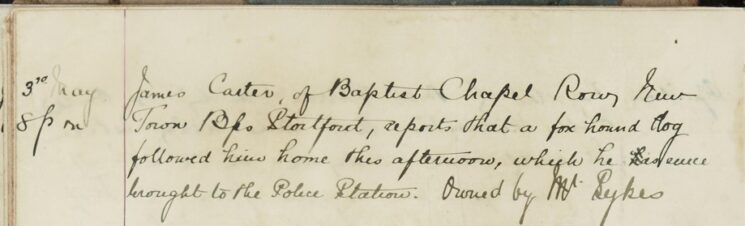 3rd May James Carter, of Baptist Chapel Row, New
8 pm Town Bps Stortford, reports that a fox hound dog
followed him home this afternoon, which he has since
brought to the Police Station. Owned by Mr. Sykes